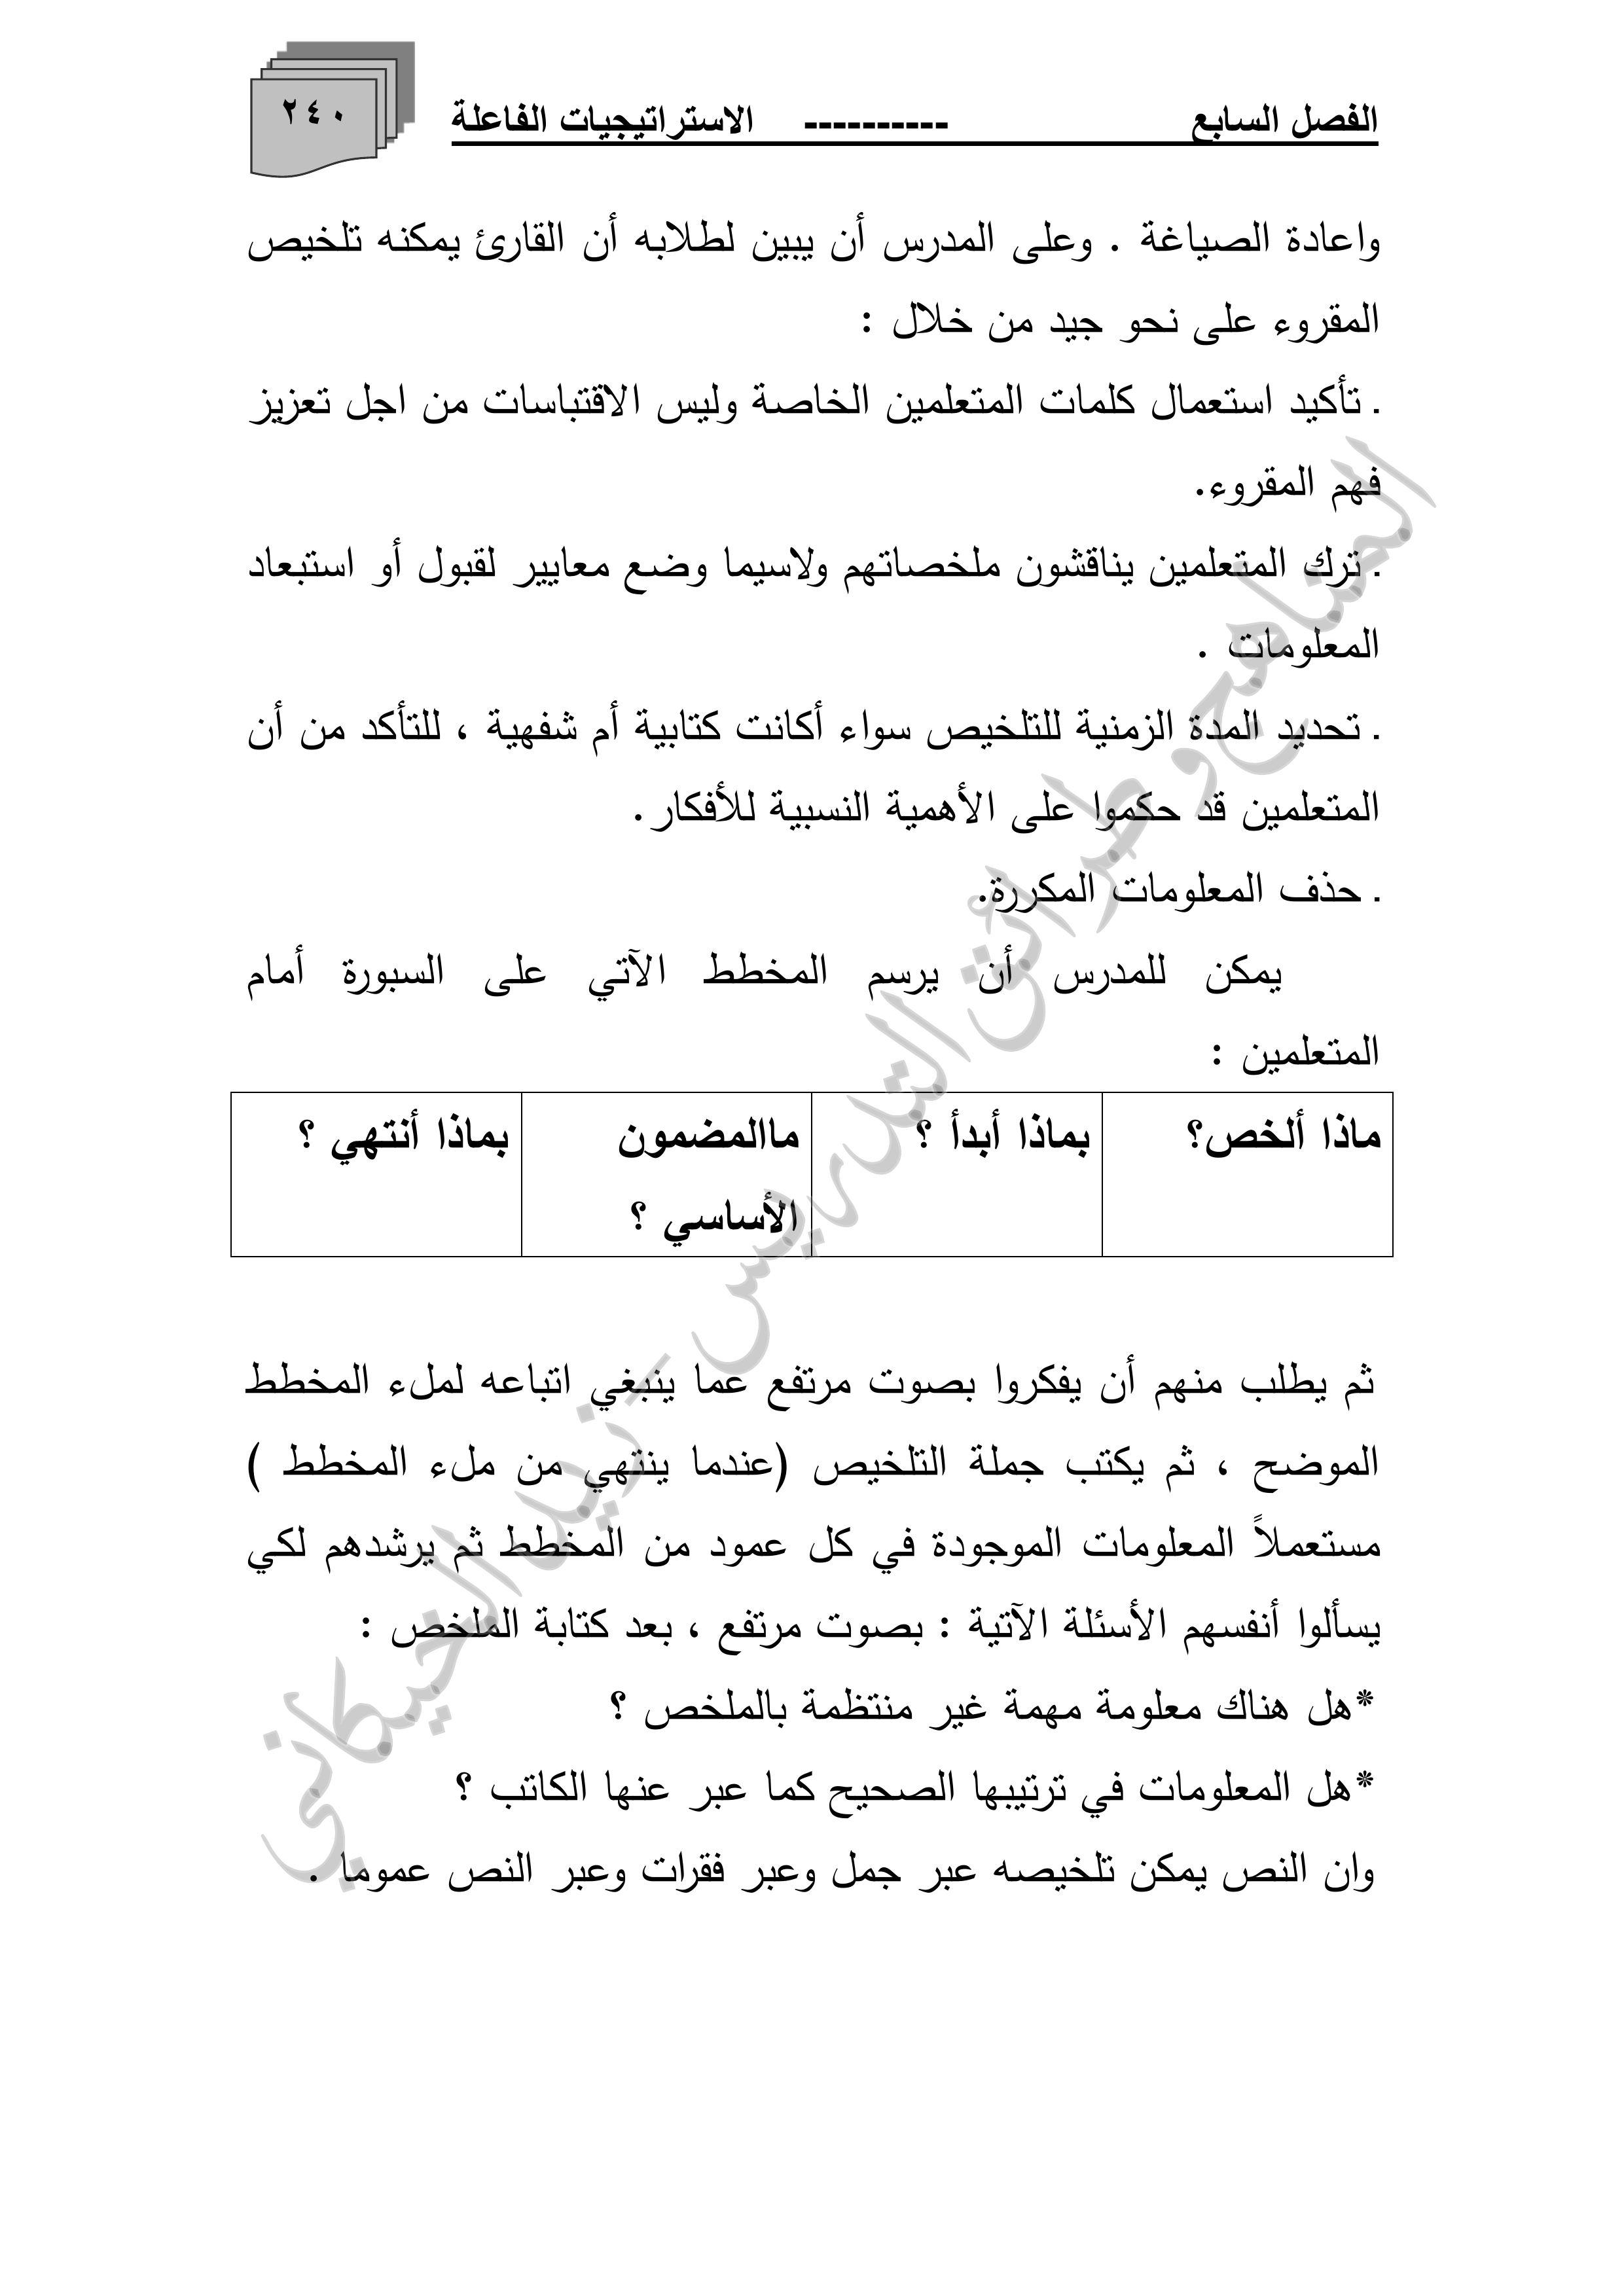 الفصل السابع ---------- الاستراتيجيات الفاعلة
٢٤٠
واعادة الصياغة . وعلى المدرس أن يبين لطلابه أن القارئ يمكنه تلخيص
المقروء على نحو جيد من خلال :
. تأكيد استعمال كلمات المتعلمين الخاصة وليس الاقتباسات من اجل تعزيز
فهم المقروء.
. ترك المتعلمين يناقشون ملخصاتهم ولاسيما وضع معايير لقبول أو استبعاد
المعلومات .
. تحديد المدة الزمنية للتلخيص سواء أكانت كتابية أم شفهية ، للتأكد من أن
المتعلمين قد حكموا على الأهمية النسبية للأفكار .
. حذف المعلومات المكررة.
يمكن للمدرس أن يرسم المخطط الآتي على السبورة أمام
المتعلمين :
ماذا ألخص؟ بماذا أبدأ ؟ ماالمضمون بماذا أنتهي ؟
الأساسي ؟
ثم يطلب منهم أن يفكروا بصوت مرتفع عما ينبغي اتباعه لملء المخطط
الموضح ، ثم يكتب جملة التلخيص (عندما ينتهي من ملء المخطط )
مستعملاً المعلومات الموجودة في كل عمود من المخطط ثم يرشدهم لكي
يسألوا أنفسهم الأسئلة الآتية : بصوت مرتفع ، بعد كتابة الملخص :
*هل هناك معلومة مهمة غير منتظمة بالملخص ؟
*هل المعلومات في ترتيبها الصحيح كما عبر عنها الكاتب ؟
وان النص يمكن تلخيصه عبر جمل وعبر فقرات وعبر النص عموما .
المناهج وطرائق التدريس - زيد الخيكاني